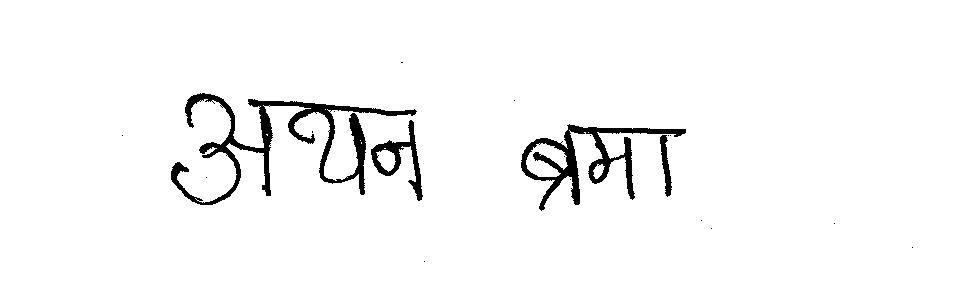 अथन ब्रमा